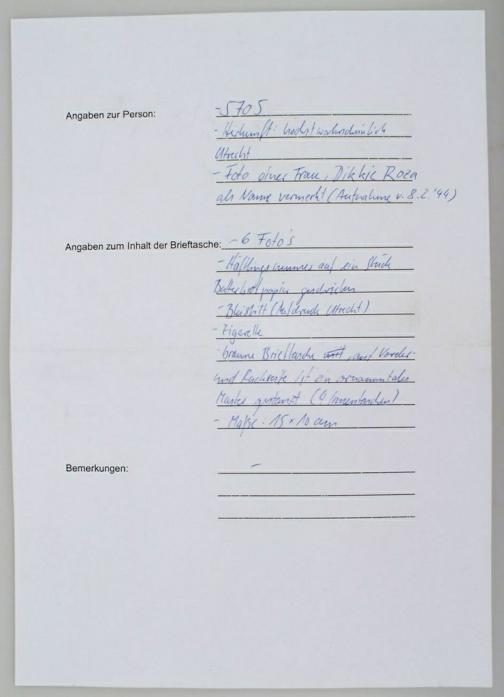 Angaben zur Person: - 5705
- Herkunft: höchstwahrscheinlich
Utrecht
- Foto einer Frau, Dikkie Roza
als Name vermerkt (Aufnahme v. 8.2.'44)
Angaben zum Inhalt der Brieftasche: - 6 Foto's
- Häftlingsnummer auf ein Stück
Butterbrotpapier geschrieben
- Bleistift (Utrecht)
- Zigarette
- braune Brieftasche auf Vorder-
und Rückseite ist ein ornamentales
Muster gestanzt (Innentaschen)
- Maße: 15 x 10 cm
Bemerkungen: -